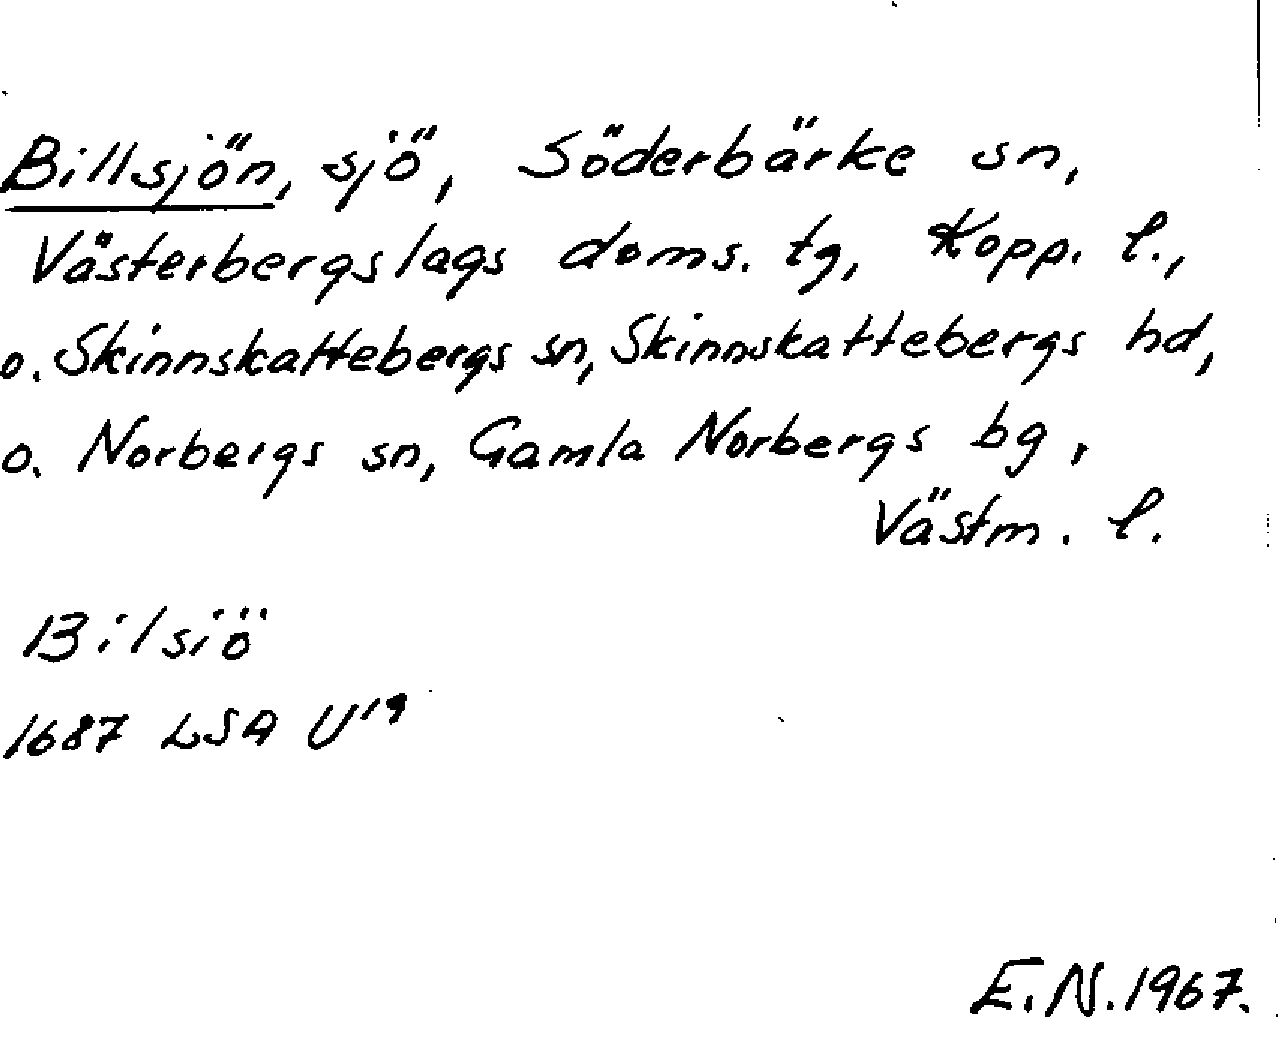 Billsjön, sjö, Söderbärke sn,
Västerbergslags doms. tg, Kopp. l.,
o. Skinnskattebergs sn, Skinnskattebergs hd,
o. Norbergs sn, Gamla Norbergs bg,
Västm. l.
Bilsiö
1687 LSA U19
E.N. 1967.